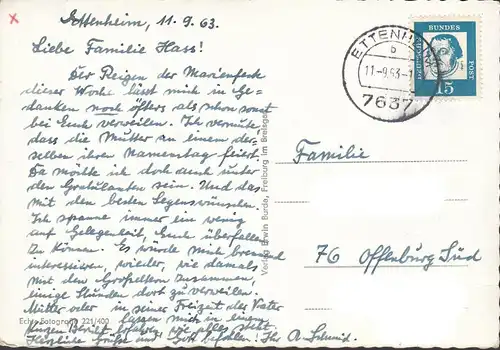 Ettenheim, 11.9.63.
Liebe Familie Hass!
Der Reigen der Marienfeste
dieser Woche lässt mich in Ge-
danken noch öfters als schon sonst
bei Euch verweilen. Ich vermute
dass die Mutter an einem der-
selben ihren Namenstag feiert.
Da möchte ich doch auch unter
den Gratulanten sein. Und das
mit den besten Segenswünschen.
Ich spanne immer ein wenig
auf Gelegenheit, Euch überfallen
zu können. Es würde mich brennend
interessieren, wieder, wie damals
mit den Großeltern zusammen,
einige Stunden dort zu verweilen.
Mutter oder in seiner Freizeit der Vater
lassen mich in einem
kurzen Bericht erfahren, wie alles steht.
Herzliche Grüße und Gott befohlen! Ihr A. Schmid.
Echte Fotografie 221/400
Verlag Erwin Burda, Freiburg im Breisgau
ETTENHEIM
b
11.-9.63-1
7637
DEUTSCHE
BUNDES
POST
15
Familie
76 Offenburg Süd